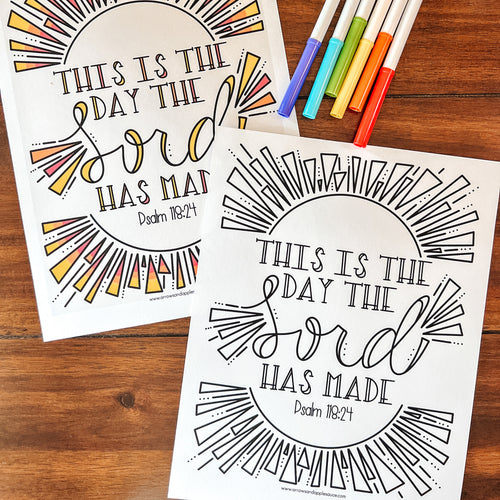 THIS IS THE
DAY THE
Lord
HAS MAD
Psalm 118:24
www.arrowsandapple
THIS IS THE
DAY THE
Lord
HAS MADE
Psalm 118:24
www.arrowsandapplesauce.com